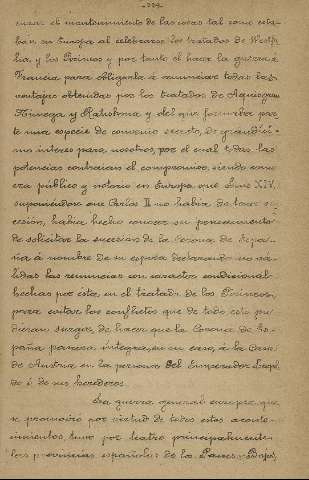 -
curar el mantenimiento de las cosas tal como esta-
ban en Europa al celebrarse los tratados de Westfa-
lia, y los Pirineos y por tanto el hacer la guerra á
Francia para obligarla á renunciar todas las
ventajas obtenidas por los tratados de Aquisgran
Nimega y Ratisbona y del que formaba par-
te una especie de convenio secreto, de grandísi-
mo interes para nosotros, por el cual todas las
potencias contraian el compromiso, siendo como
era público y notorio en Europa que Luis XIV,
suponiendose que Carlos II no habia de tener su-
cesión, habia hecho conocer su pensamiento
de solicitar la sucesion de la Corona de Espa-
ña á nombre de su esposa declarando no va-
lidas las renuncias con caracter condicional
hechas por ésta, en el tratado de los Pirineos,
para evitar los conflictos que de todo esto pu-
dieran surgir, de hacer que la Corona de Es-
paña pasara integra, en su caso, á la Casa
de Austria en la persona del Emperador Leopol-
do ó de sus herederos.
La guerra general europea que
se promovió por virtud de todos estos aconte-
cimientos, tuvo por teatro principalmente
las provincias españolas de los Paises-Bajos,